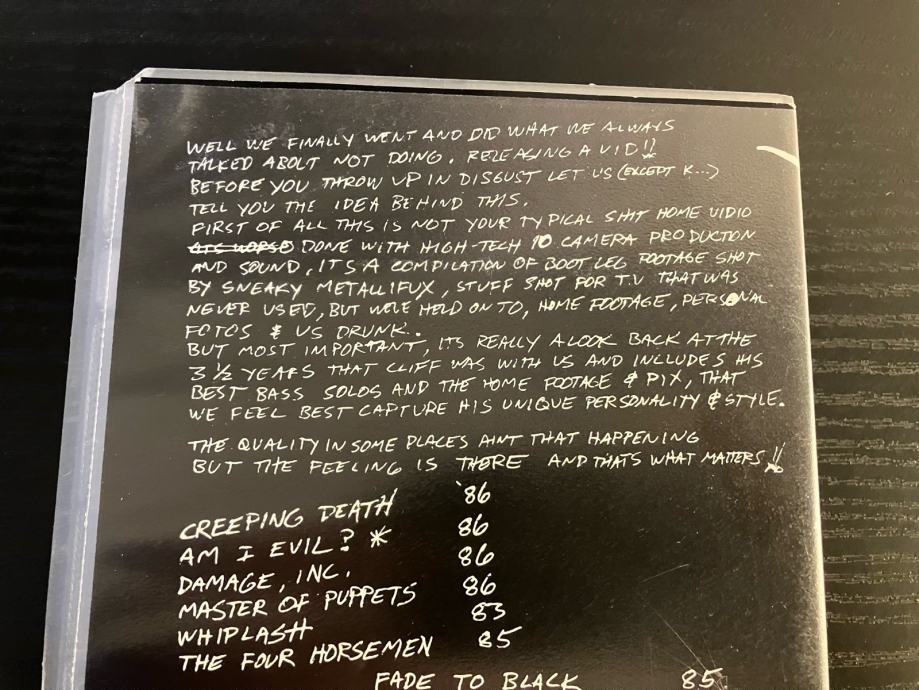 WELL WE FINALLY WENT AND DID WHAT WE ALWAYS
TALKED ABOUT NOT DOING. RELEASING A VID!!
BEFORE YOU THROW UP IN DISGUST LET US (EXCEPT K...)
TELL YOU THE IDEA BEHIND THIS.
FIRST OF ALL THIS IS NOT YOUR TYPICAL SHIT HOME VIDIO
DONE WITH HIGH-TECH 10 CAMERA PRODUCTION
AND SOUND, ITS A COMPILATION OF BOOT LEG FOOTAGE SHOT
BY SNEAKY METALLIFUX, STUFF SHOT FOR T.V THAT WAS
NEVER USED, BUT WEVE HELD ON TO, HOME FOOTAGE, PERSONAL
FOTOS & US DRUNK.
BUT MOST IMPORTANT, ITS REALLY A LOOK BACK AT THE
3 1/2 YEARS THAT CLIFF WAS WITH US AND INCLUDES HIS
BEST BASS SOLOS AND THE HOME FOOTAGE & PIX, THAT
WE FEEL BEST CAPTURE HIS UNIQUE PERSONALITY & STYLE.
THE QUALITY IN SOME PLACES AINT THAT HAPPENING
BUT THE FEELING IS THERE AND THATS WHAT MATTERS!!
CREEPING DEATH '86
AM I EVIL? * 86
DAMAGE, INC. 86
MASTER OF PUPPETS 86
WHIPLASH 83
THE FOUR HORSEMEN 85
FADE TO BLACK 85